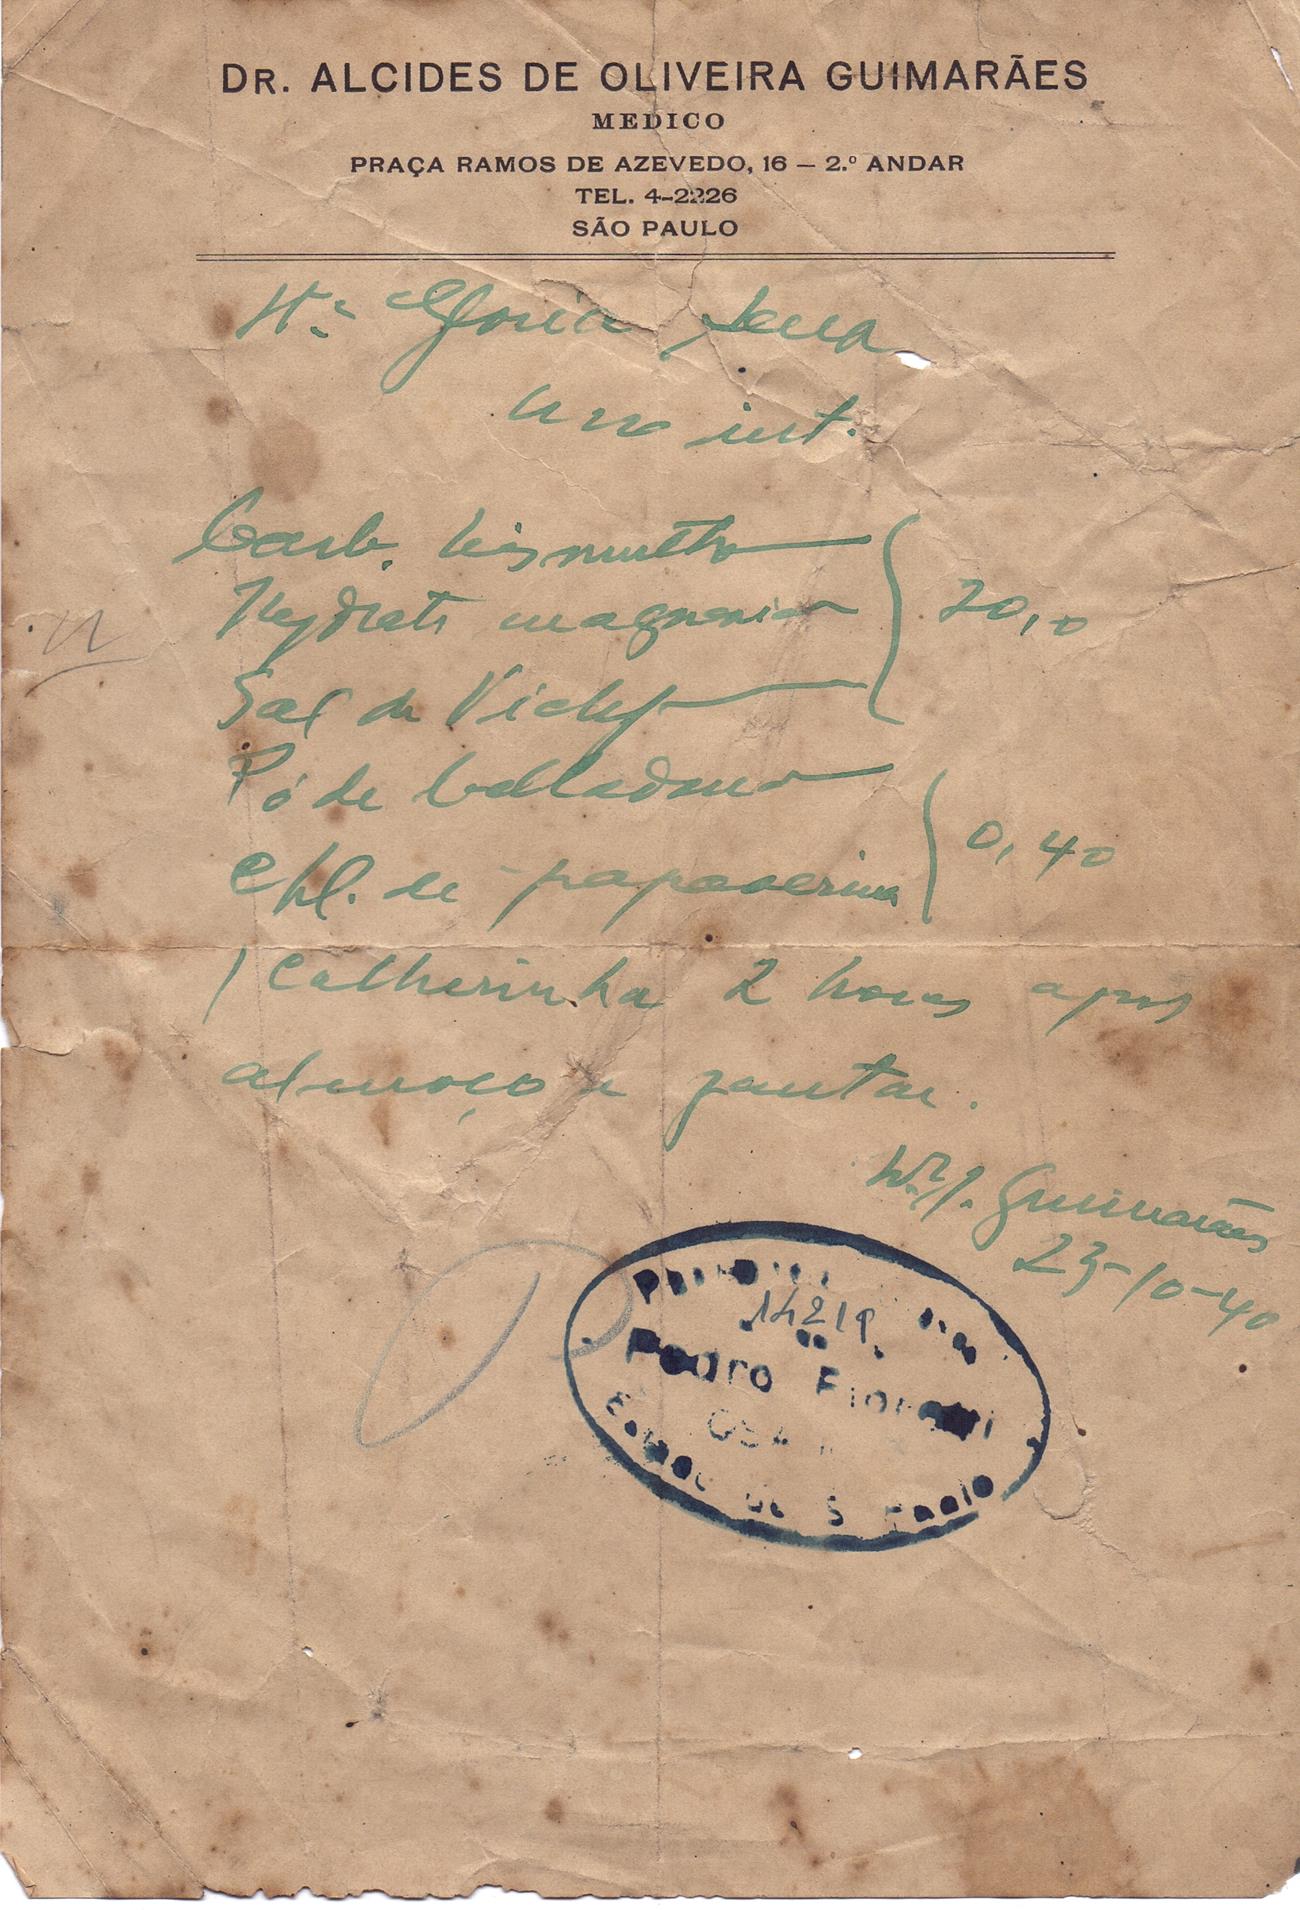 DR. ALCIDES DE OLIVEIRA GUIMARÃES
MEDICO
PRAÇA RAMOS DE AZEVEDO, 16 — 2.º ANDAR
TEL. 4-2226
SÃO PAULO
Gloria
Uso int.
Carb. bismutho
Hydrato magnesia
20,0
Sal de Vichy
Pó de belladona
0,40
Chl. de papaverina
1 colherinha 2 horas apos
almoço e jantar.
Guimarães
23-10-40
14219
Pedro
Estado de S Paulo